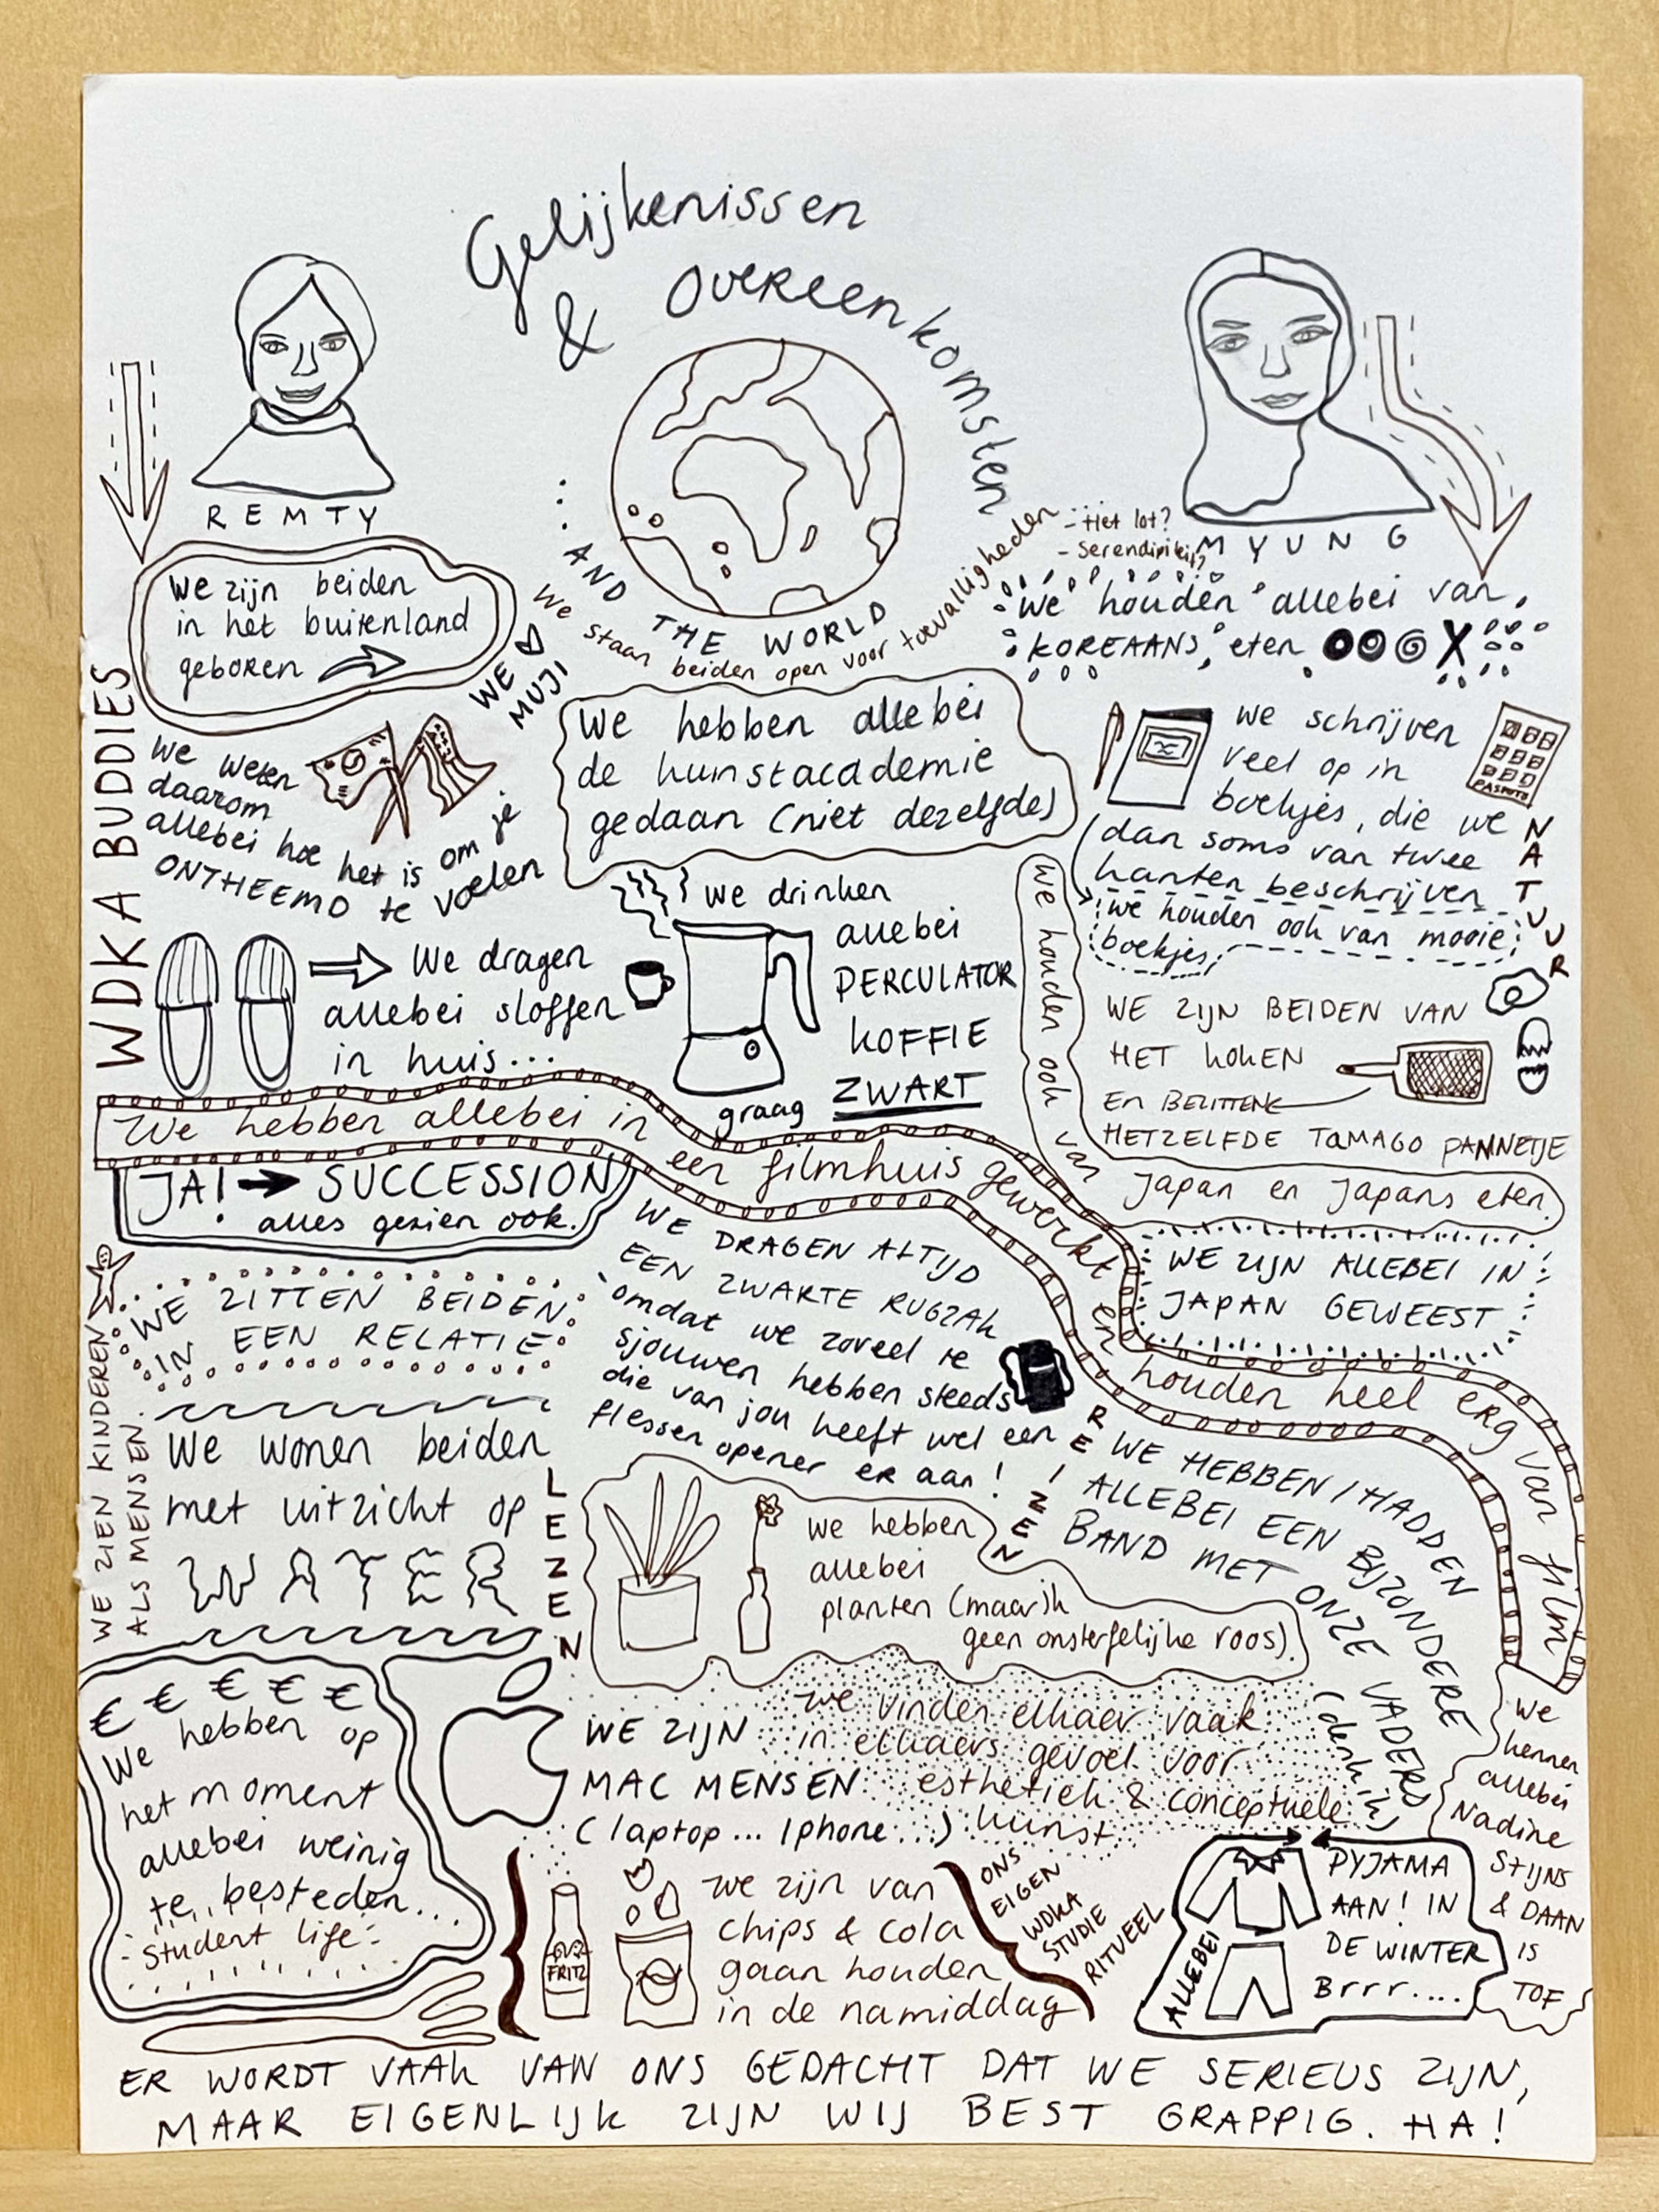 Gelijkenissen
& overeenkomsten
REMTY
... AND THE WORLD
We staan beiden open voor toevalligheden
- Het lot?
- Serendipiteit?
MYUNG
We zijn beiden
in het buitenland
geboren
WE
MUJI
We houden allebei van
KOREAANS eten
WDKA BUDDIES
We weten
daarom
allebei hoe het is om je
ONTHEEMD te voelen
We hebben allebei
de kunstacademie
gedaan (niet dezelfde)
We schrijven
veel op in
boekjes, die we
dan soms van twee
kanten beschrijven
PASPOTS
we houden ook van mooie
boekjes
NATUUR
We dragen
allebei sloffen
in huis...
We drinken
allebei
PERCULATOR
KOFFIE
graag ZWART
We houden ook van
Japan en Japans eten.
WE ZIJN BEIDEN VAN
HET KOKEN
En BEZITTEN
HETZELFDE TAMAGO PANNETJE
We hebben allebei in een filmhuis gewerkt en houden heel erg van film
JA! → SUCCESSION
alles gezien ook.
WE ZIJN ALLEBEI IN
JAPAN GEWEEST
WE ZITTEN BEIDEN
IN EEN RELATIE
WE ZIEN KINDEREN
ALS MENSEN.
WE DRAGEN ALTIJD
EEN ZWARTE RUGZAK
omdat we zoveel te
sjouwen hebben steeds
die van jou heeft wel een
flessen opener er aan!
We wonen beiden
met uitzicht op
WATER
LEZEN
REIZEN
WE HEBBEN / HADDEN
ALLEBEI EEN BIJZONDERE
BAND MET ONZE VADERS
(denk ik)
We hebben
allebei
planten (maar ik
geen onsterfelijke roos).
€ € € € €
We hebben op
het moment
allebei weinig
te besteden...
student life
WE ZIJN
MAC MENSEN
(laptop... Iphone...)
we vinden elkaer vaak
in elkaers gevoel voor
esthetiek & conceptuele
kunst
We
kennen
allebei
Nadine
STIJNS
& DAAN
IS
TOF
FRITZ
We zijn van
chips & cola
gaan houden
in de namiddag
ONS
EIGEN
WDKA
STUDIE
RITUEEL
ALLEBEI
PYJAMA
AAN! IN
DE WINTER
Brrr....
ER WORDT VAAK VAN ONS GEDACHT DAT WE SERIEUS ZIJN,
MAAR EIGENLIJK ZIJN WIJ BEST GRAPPIG. HA!